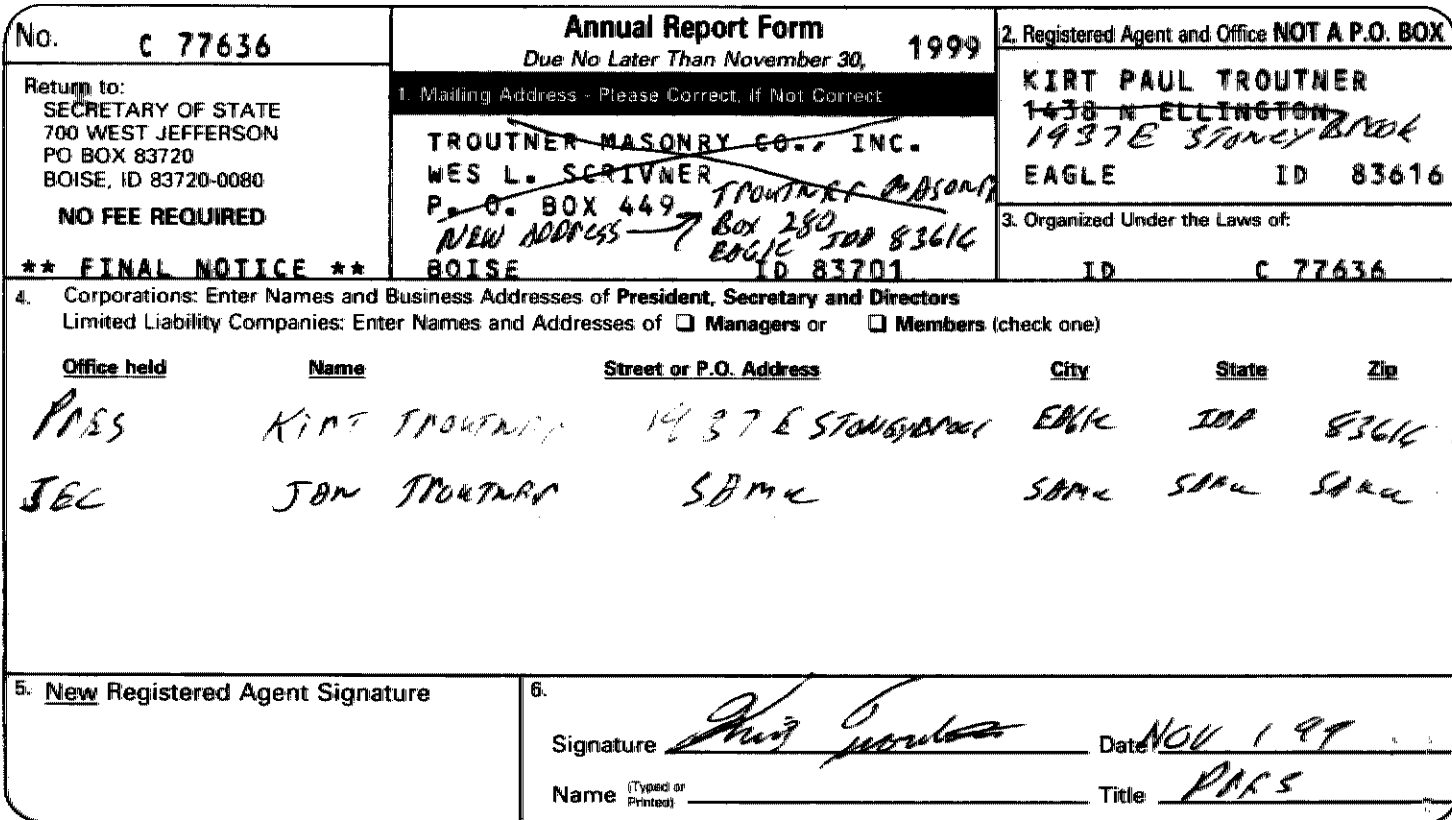 No. C 77636
Return to:
SECRETARY OF STATE
700 WEST JEFFERSON
PO BOX 83720
BOISE, ID 83720-0080
NO FEE REQUIRED
** FINAL NOTICE **
Annual Report Form
Due No Later Than November 30, 1999
1. Mailing Address - Please Correct, If Not Correct
TROUTNER MASONRY CO., INC.
WES L. SCRIVNER
P. O. BOX 449 TROUTNER MASONRY
NEW ADDRESS Box 280
EAGLE IDA 83616
BOISE ID 83701
2. Registered Agent and Office NOT A P.O. BOX
KIRT PAUL TROUTNER
1438 N ELLINGTON
1937 E STONEY BROOK
EAGLE ID 83616
3. Organized Under the Laws of:
ID C 77636
4. Corporations: Enter Names and Business Addresses of President, Secretary and Directors
Limited Liability Companies: Enter Names and Addresses of ❑ Managers or ❑ Members (check one)
Office held Name Street or P.O. Address City State Zip
PRES KIRT TROUTNER 1937 E STONEYBROOK EAGLE IDA 83616
SEC JAN TROUTNER SAME SAME SAME SAME
5. New Registered Agent Signature
6.
Signature Kirt Troutner Date NOV 1 99
Name (Typed or Printed) Title PRES